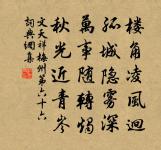 楼角凌風迥
孤城隐霧深
萬事隨轉燭
秋光近青岑
文天祥梅州第六十六
詞典網集